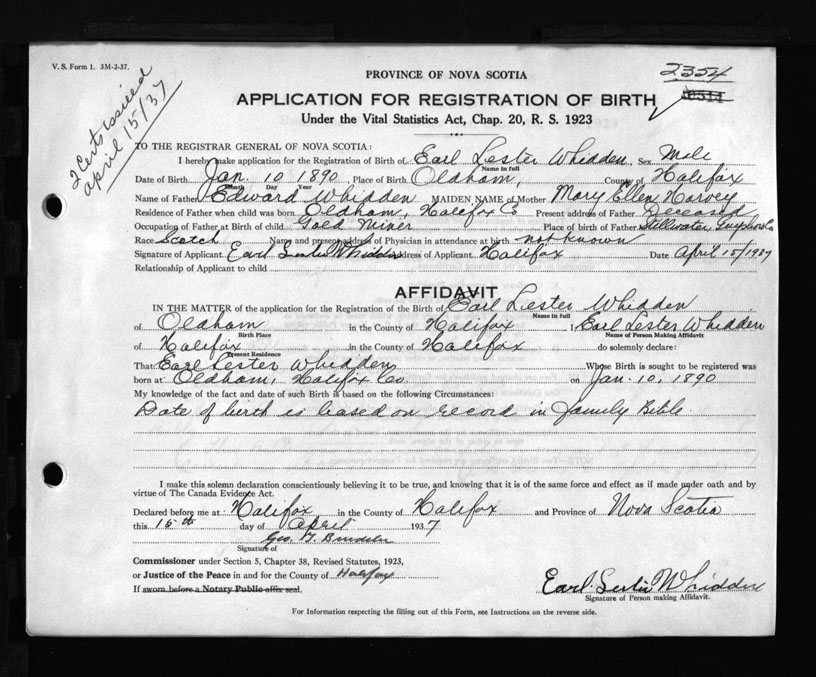 V. S. Form 1. 3M-2-37.
2354
PROVINCE OF NOVA SCOTIA
APPLICATION FOR REGISTRATION OF BIRTH
Under the Vital Statistics Act, Chap. 20, R. S. 1923
2 Certs issued
April 15/37
TO THE REGISTRAR GENERAL OF NOVA SCOTIA:
I hereby make application for the Registration of Birth of Earl Lester Whidden, Sex Male
Name in full
Date of Birth Jan. 10 1890 Place of Birth Oldham, County of Halifax
Month Day Year
Name of Father Edward Whidden MAIDEN NAME of Mother Mary Ellen Harvey
Residence of Father when child was born Oldham, Halifax Co Present address of Father Deceased
Occupation of Father at Birth of child Gold Miner Place of birth of Father Stillwater, Guysboro Co
Race Scotch Name and present address of Physician in attendance at birth not known
Signature of Applicant Earl Lester Whidden Address of Applicant Halifax Date April 15/1937
Relationship of Applicant to child
AFFIDAVIT
IN THE MATTER of the application for the Registration of the Birth of Earl Lester Whidden
Name in full
of Oldham in the County of Halifax I Earl Lester Whidden
Birth Place Name of Person Making Affidavit
of Halifax in the County of Halifax do solemnly declare:
Present Residence
That Earl Lester Whidden Whose Birth is sought to be registered was
born at Oldham, Halifax Co. on Jan. 10, 1890
My knowledge of the fact and date of such Birth is based on the following Circumstances:
Date of birth is based on record in family Bible
I make this solemn declaration conscientiously believing it to be true, and knowing that it is of the same force and effect as if made under oath and by
virtue of The Canada Evidence Act.
Declared before me at Halifax in the County of Halifax and Province of Nova Scotia
this 15th day of April 1937
Geo.
Signature of
Commissioner under Section 5, Chapter 38, Revised Statutes, 1923,
or Justice of the Peace in and for the County of Halifax
If sworn before a Notary Public affix seal.
Earl Lester Whidden
Signature of Person making Affidavit.
For Information respecting the filling out of this Form, see Instructions on the reverse side.